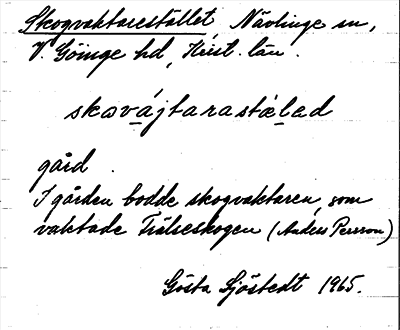 Skogvaktarestället, Nävlinge sn,
V. Göinge hd, Krist. län.
skɷvájtarastæ̱lad
gård
I gården bodde skogvaktaren, som
vaktade Frälseskogen (Anders Persson)
Gösta Sjöstedt 1965.